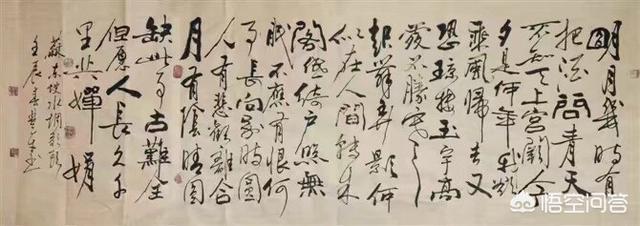 明月幾時有
把酒問青天
不知天上宮闕今
夕是何年我欲
乘風歸去又
恐瓊樓玉宇高
處不勝寒
起舞弄影何
似在人間轉朱
閣低綺戶照無
眠不應有恨何
事長向別時圓
人有悲歡離合
月有陰晴圓
缺此事古難全
但願人長久千
里共嬋娟
蘇東坡水調歌頭
壬辰春
悟空问答